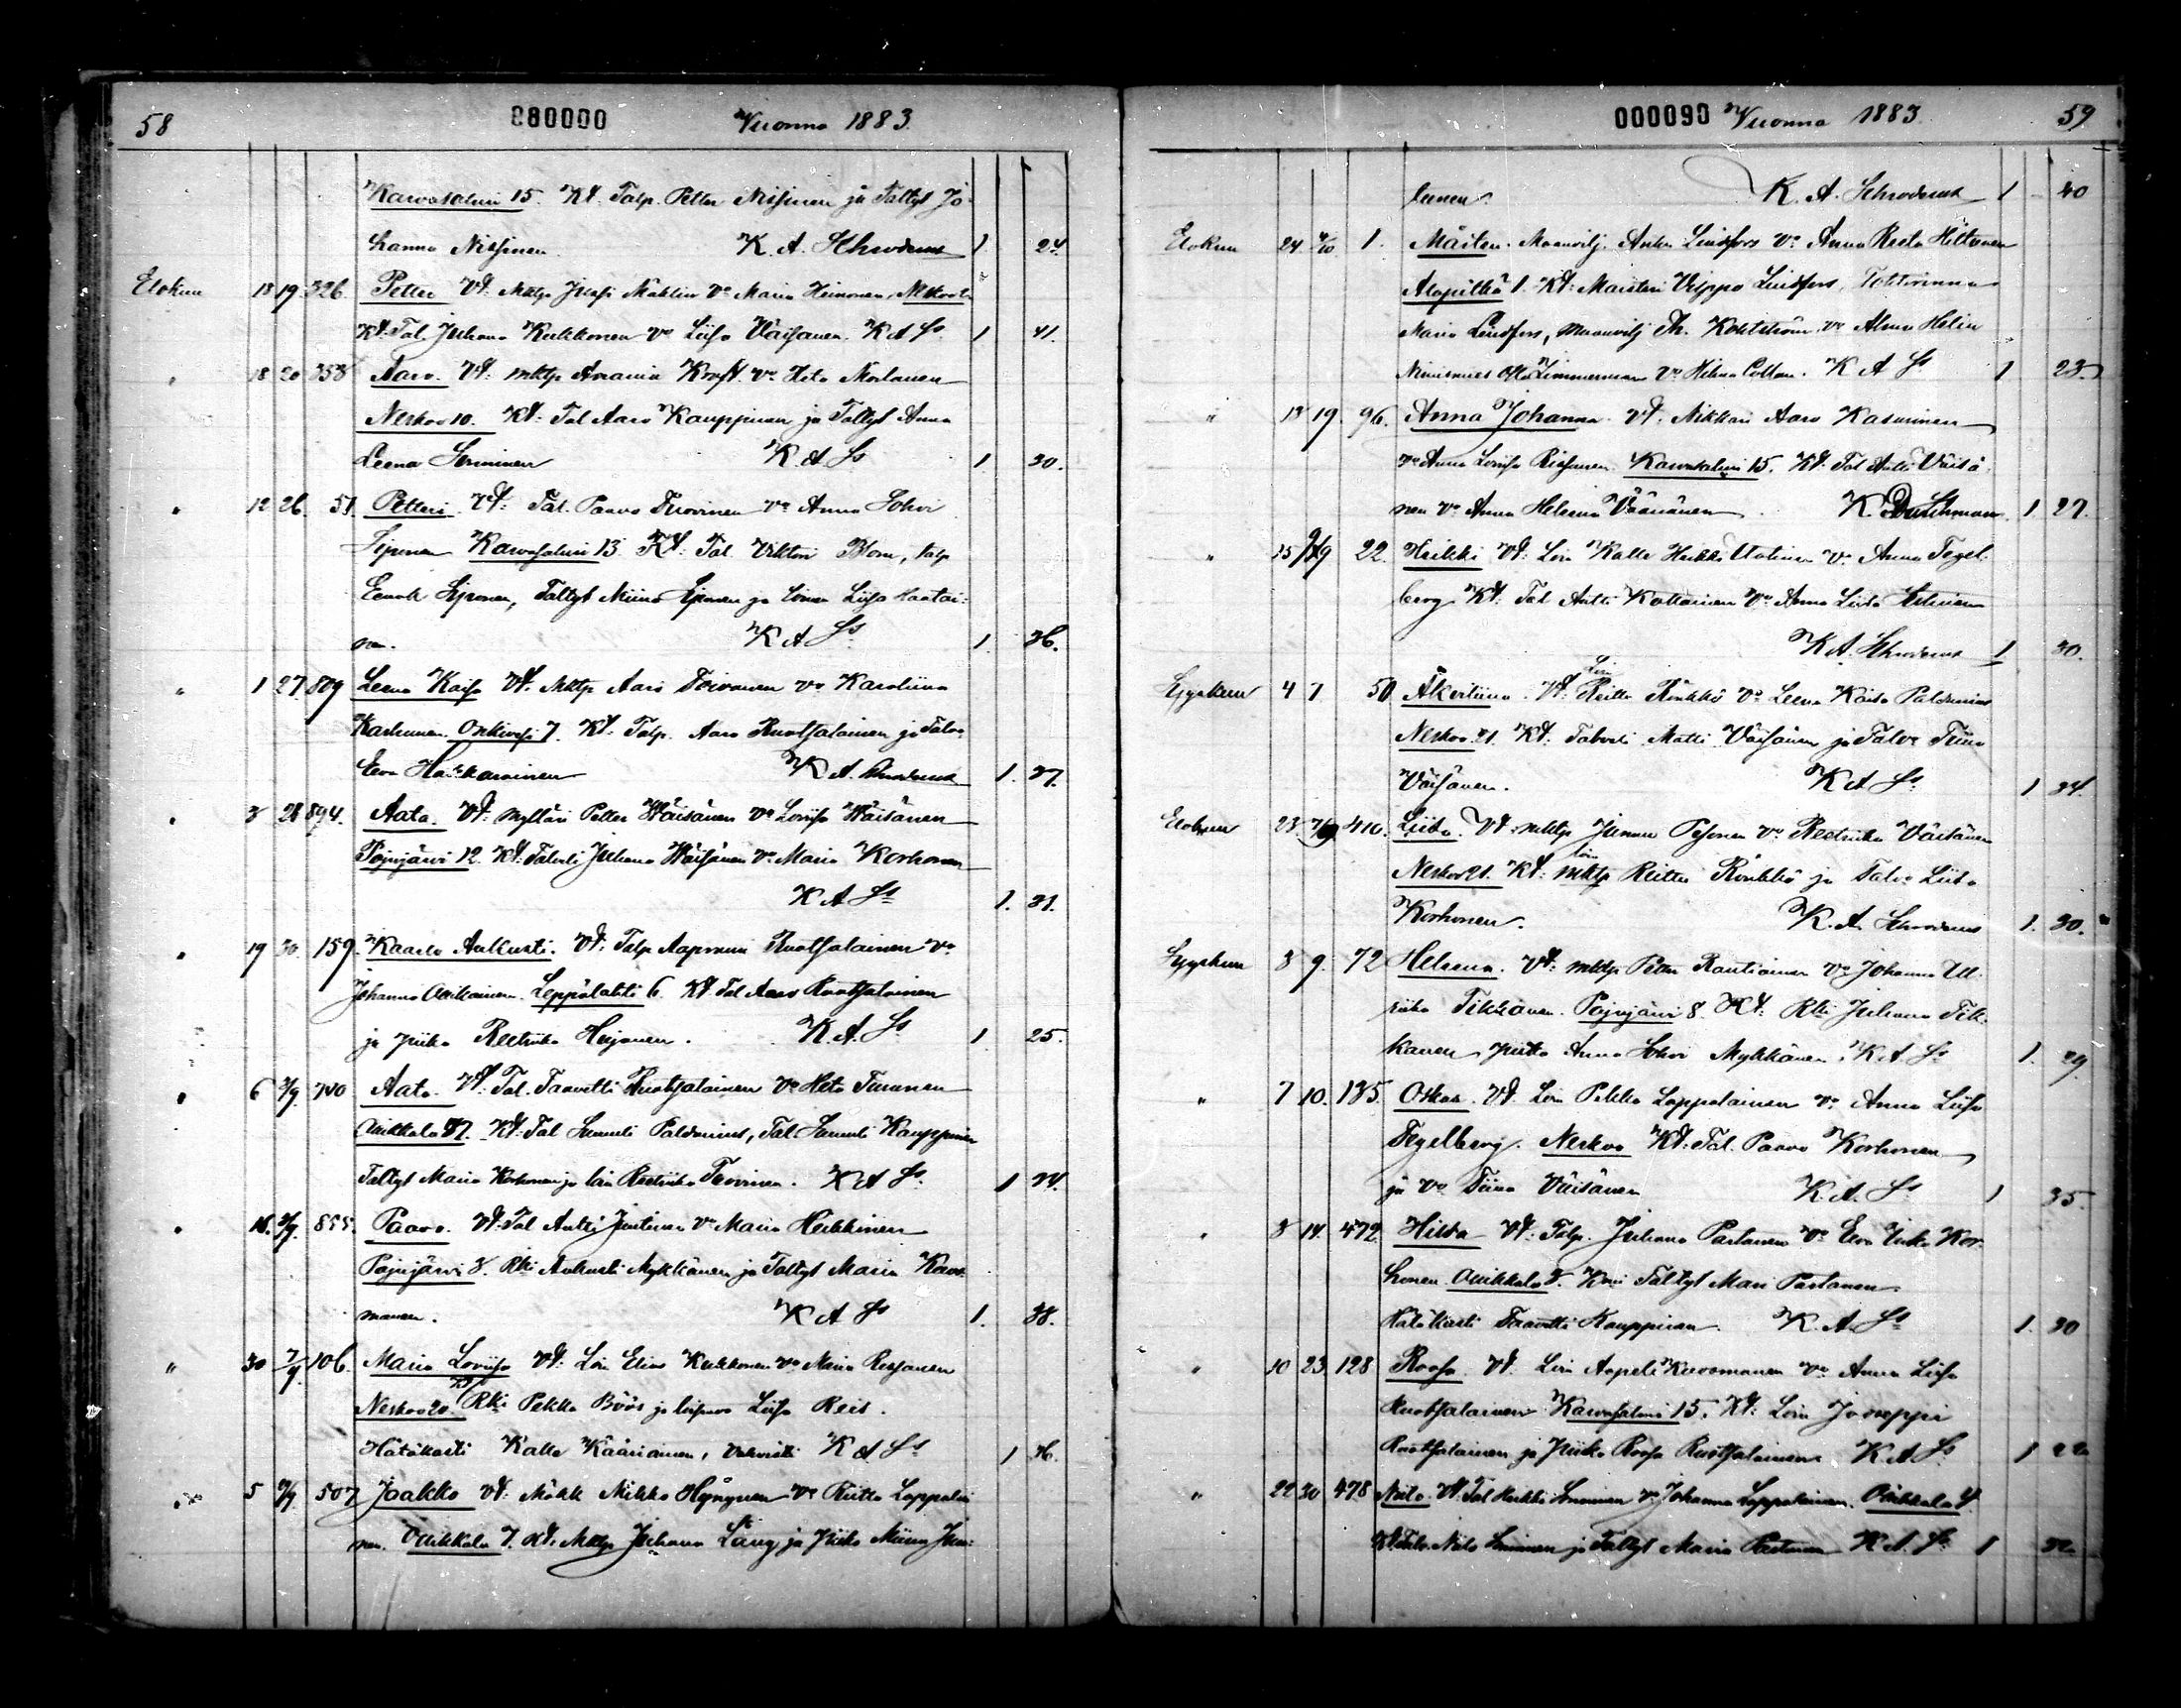 58 080000 Vuonna 1883.
Karvasalmi 15. Kt. Talp. Petter Nissinen ja Taltyt Jo-
hanna Nissinen. K. A. Schroderus 1 24.
Elokuu 18 19 326. Petter Vt: Mktp Jussi Mäklin Va Maria Heinonen, Nerkoo
Kt. Tal. Juhana Kukkonen Va Liisa Väisänen. K A Ss 1 41.
" 18 20 358 Aaro. Vt: mktp Anania Kroft Va Heta Nortanen
Nerkoo 10. Kt: Tal Aaro Kauppinen ja Taltyt Anna
Leena Sorminen K. A Ss 1 30.
" 12 26. 51 Petteri Vt: Tal. Paavo Turvinen Va Anna Sohvi
Siponen Karvasalmi 13 Kt: Tal. Viktori Blom, talp
Eenok Siponen, Taltyt Miina Siponen ja loinen Liisa Haatai-
nen. K A Ss 1. 36.
" 1 27. 809 Leena Kaisa Vt. Mktp Aaro Toivanen Va Karoliina
Karhunen. Onkivesi 7. Kt. Talp. Aaro Ruotsalainen ja Talva
Eeva K. A. Schroderus 1. 37.
" 3 28 894. Aata. Vt: mylläri Petter Wäisänen Va Loviisa Wäisänen
Pajujärvi 12. Kt: Talveli Juhana Wäisänen Va Maria Korhonen
K A Ss 1. 31.
" 19 30. 159. Kaarlo Aukusti. Vt: Talp Aapramі Ruotsalainen Va
Johanna Ollikainen. Leppälahti 6. Kt Tal Aaro Ruotsalainen
ja piika Reetriika Heijonen. K. A. Ss 1 25.
" 6 2/9. 740 Aato. Vt. Tal. Taavetti Ruotsalainen Va Heta Turunen
Ollikkala 7. Kt: Tal Samuli Paldanius, Tal. Samuli Kauppinen
Taltyt Maria Korhonen ja loin Reetriika Turvinen. K A Ss 1 34.
" 16. 2/9. 855. Paavo. Vt: Tal Antti Juntunen Va Maria Heikkinen
Pajujärvi 8. Rki Aukusti Mykkänen ja Taltyt Maria Kuos-
manen. K A Ss 1. 38.
" 30 7/9. 106. Maria Loviisa Vt: Loi Elias Kukkonen Va Maria Ressanen
Nerkoo 20. Kt Rki Pekka Böös ja Liisa Reis.
Hätäkasti Kalle Kääriäinen, vahvisti K A Ss 1 36.
" 5 9/9 507 Jaakko Vt: Mökk Mikko Hyngynen Va Riitta Lappalai
nen. Ollikkala 7. Kt. Mktp Juhana Lång ja piika Miina Jun-
000090 Vuonna 1883. 59
lunen. K. A. Schroderus 1 40
Elokuu 24 4/10 1. Märten. Maanvilj. Anton Lindfors Va Anna Reeta Hiltunen
Alapitkä 1. Kt: Maisteri Veippo Lindfors, Tohtorinna
Maria Lindfors, maanvilj Th. Kohlström Va Alma Helin
Otto Zimmerman Va Hilma Collan. K A Ss 1 23.
" 13 19. 96. Anna Johanna. Vt. Nikkari Aaro Kasurinen
Va Anna Loviisa Rissanen. Karvasalmi 15. Kt Tal Antti Väisä-
nen Va Anna Helena Väänänen. K. Duchman. 1. 27.
" 15 9/9 22. Heikki Vt: Loin Kalle Heikki Utolinen Va Anna Tegel-
berg Kt: Tal Antti Kattainen Va Anna Liisa
K A. Schroderus 1 30.
Syyskuu 4 7 50 Akviliina. Vt Loin Reitta Rönkkö Va Leena Kaisa Paldanius
Nerkoo 21. Kt: Talveli Matti Väisänen ja Talva Tiina
Väisänen. K A Ss 1 34.
Elokuu 23 7/9 410. Liisa. Vt: mktp Junnu Pesonen Va Reetriika Väisänen
Nerkoo 21. Kt: loin mktp Reitta Rönkkö ja Talva Liisa
Korhonen. K. A. Schroderus 1. 30.
Syyskuu 8 9. 72 Helena. Vt: mktp Petter Rautiainen Va Johanna Ul-
riika Tikkanen. Pajujärvi 8. Kt: Rki Juhana Tik-
kanen, piika Anna Sohvi Mykkänen, K A Ss 1. 29.
" 7 10. 135. Oskar. Vt. Loin Pekka Lappalainen Va Anna Liisa
Tegelberg. Nerkoo Kt: Tal. Paavo Korhonen
ja Va Tiina Väisänen K. A. Ss 1 35.
" 8 14. 472. Hilda Vt: Talp. Juhana Partanen Va Eeva Kor-
honen Ollikkala 8. Taltyt Mari Partanen.
Hätäkasti Taavetti Kauppinen. K. A. Ss 1. 30
" 10 23 128 Roosa. Vt. Loin Aapeli Kuosmanen Va Anna Liisa
Ruotsalainen Karvasalmi 15. Kt: Loin Joseppi
Ruotsalainen ja piika Roosa Ruotsalainen K. A Ss 1 22
" 22 30 478 Niilo Vt. Tal Heikki Sorminen Va Johanna Lappalainen. Ollikkala 4.
Kt Talv. Niilo Sorminen ja Taltyt Maria Partanen K. A. Ss 1 32